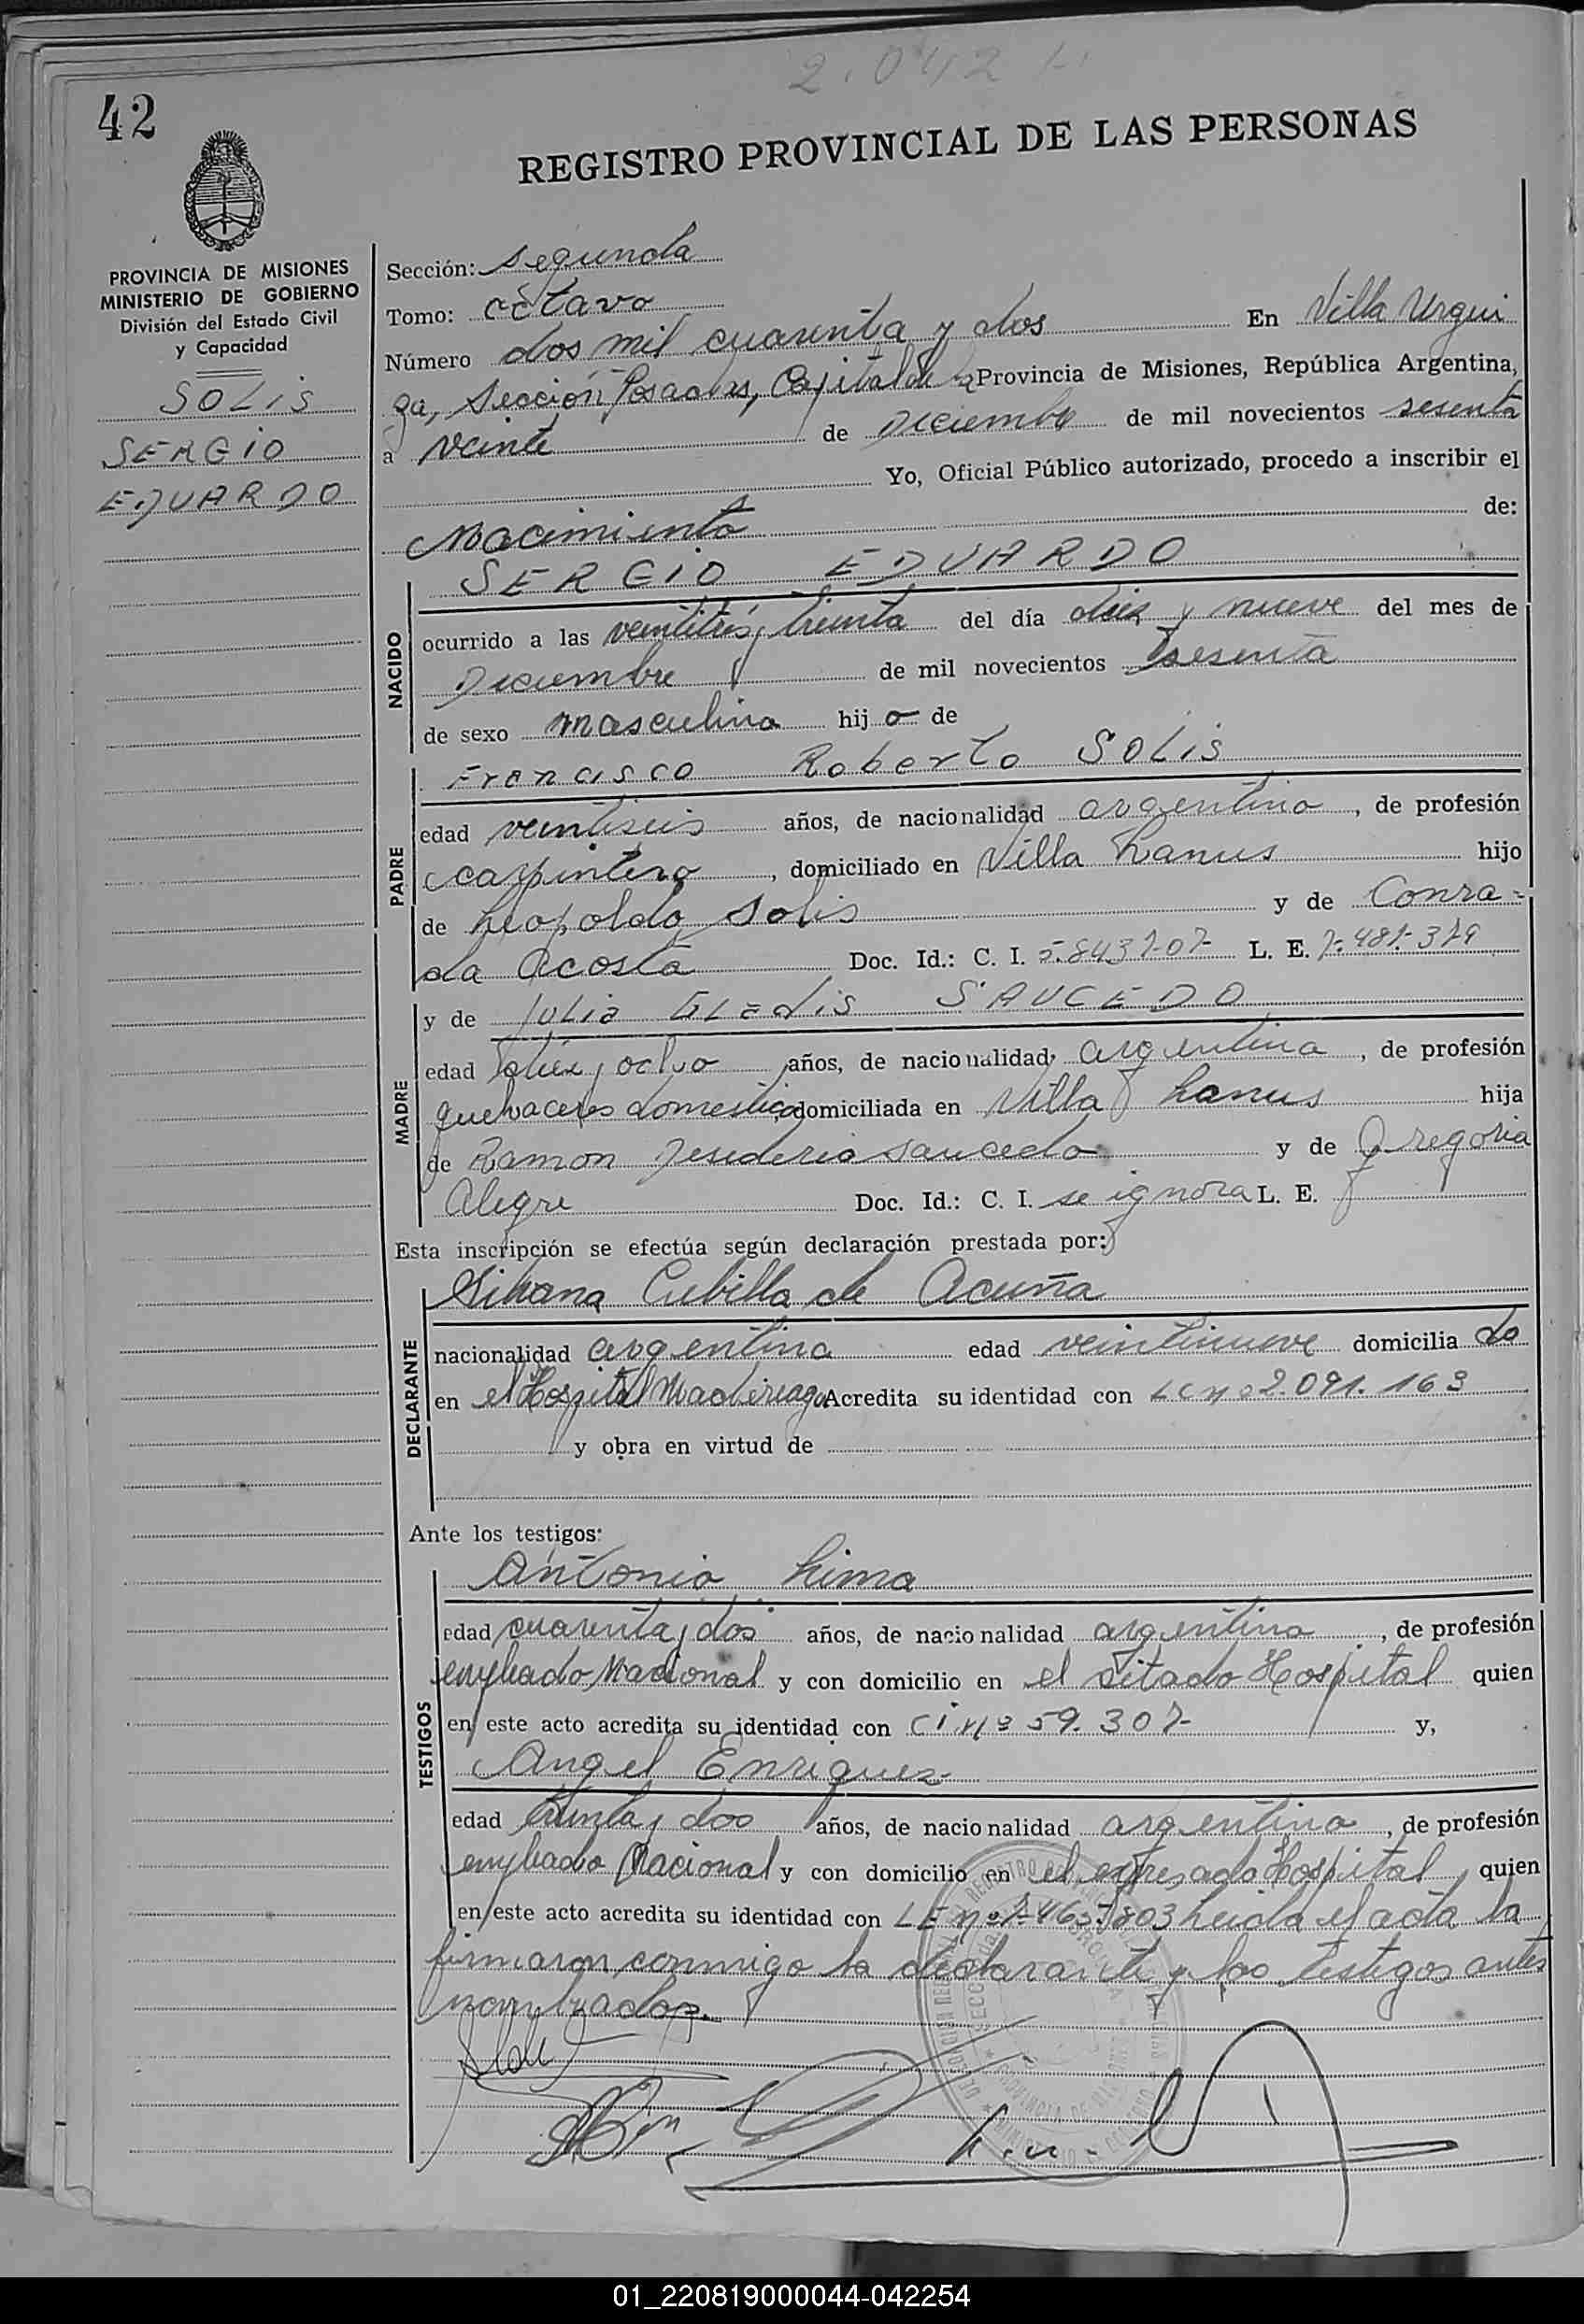 2.042
42
REGISTRO PROVINCIAL DE LAS PERSONAS
PROVINCIA DE MISIONES
MINISTERIO DE GOBIERNO
División del Estado Civil
y Capacidad
SOLIS
SERGIO
EDUARDO
Sección: segunda
Tomo: octavo
Número dos mil cuarenta y dos En Villa Urqui
za, Sección Posadas, Capital de la Provincia de Misiones, República Argentina,
a veinte de Diciembre de mil novecientos sesenta
Yo, Oficial Público autorizado, procedo a inscribir el
Nacimiento de:
SERGIO EDUARDO
NACIDO
ocurrido a las veintitrés y treinta del día diez y nueve del mes de
Diciembre de mil novecientos sesenta
de sexo masculino hijo de
Francisco Roberto SOLIS
PADRE
edad veintiseis años, de nacionalidad argentino, de profesión
carpintero, domiciliado en Villa Lanus hijo
de Leopoldo Solis y de Conra-
da Acosta Doc. Id.: C. I. L. E. 7.481.379
y de Julia Gladis SAUCEDO
MADRE
edad diez y ocho años, de nacionalidad argentina, de profesión
quehaceres domesticos domiciliada en Villa Lanus hija
de Ramon Desiderio Saucedo y de Gregoria
Alegre Doc. Id.: C. I. se ignora L. E.
Esta inscripción se efectúa según declaración prestada por:
Cubilla de Acuña
DECLARANTE
nacionalidad argentina edad veintinueve domiciliado
en el Hospital Madariaga Acredita su identidad con LC nº 2.091.163
y obra en virtud de
Ante los testigos:
Antonio Lima
TESTIGOS
edad cuarenta y dos años, de nacionalidad argentino, de profesión
empleado Nacional y con domicilio en el citado Hospital quien
en este acto acredita su identidad con CI nº 59.307- y,
Angel Enriquez
edad treinta y dos años, de nacionalidad argentino, de profesión
empleado Nacional y con domicilio en el expresado Hospital, quien
en este acto acredita su identidad con LE nº Leida el acta la
firmaron conmigo la declarante y los testigos antes
nombrados.
01_220819000044-042254